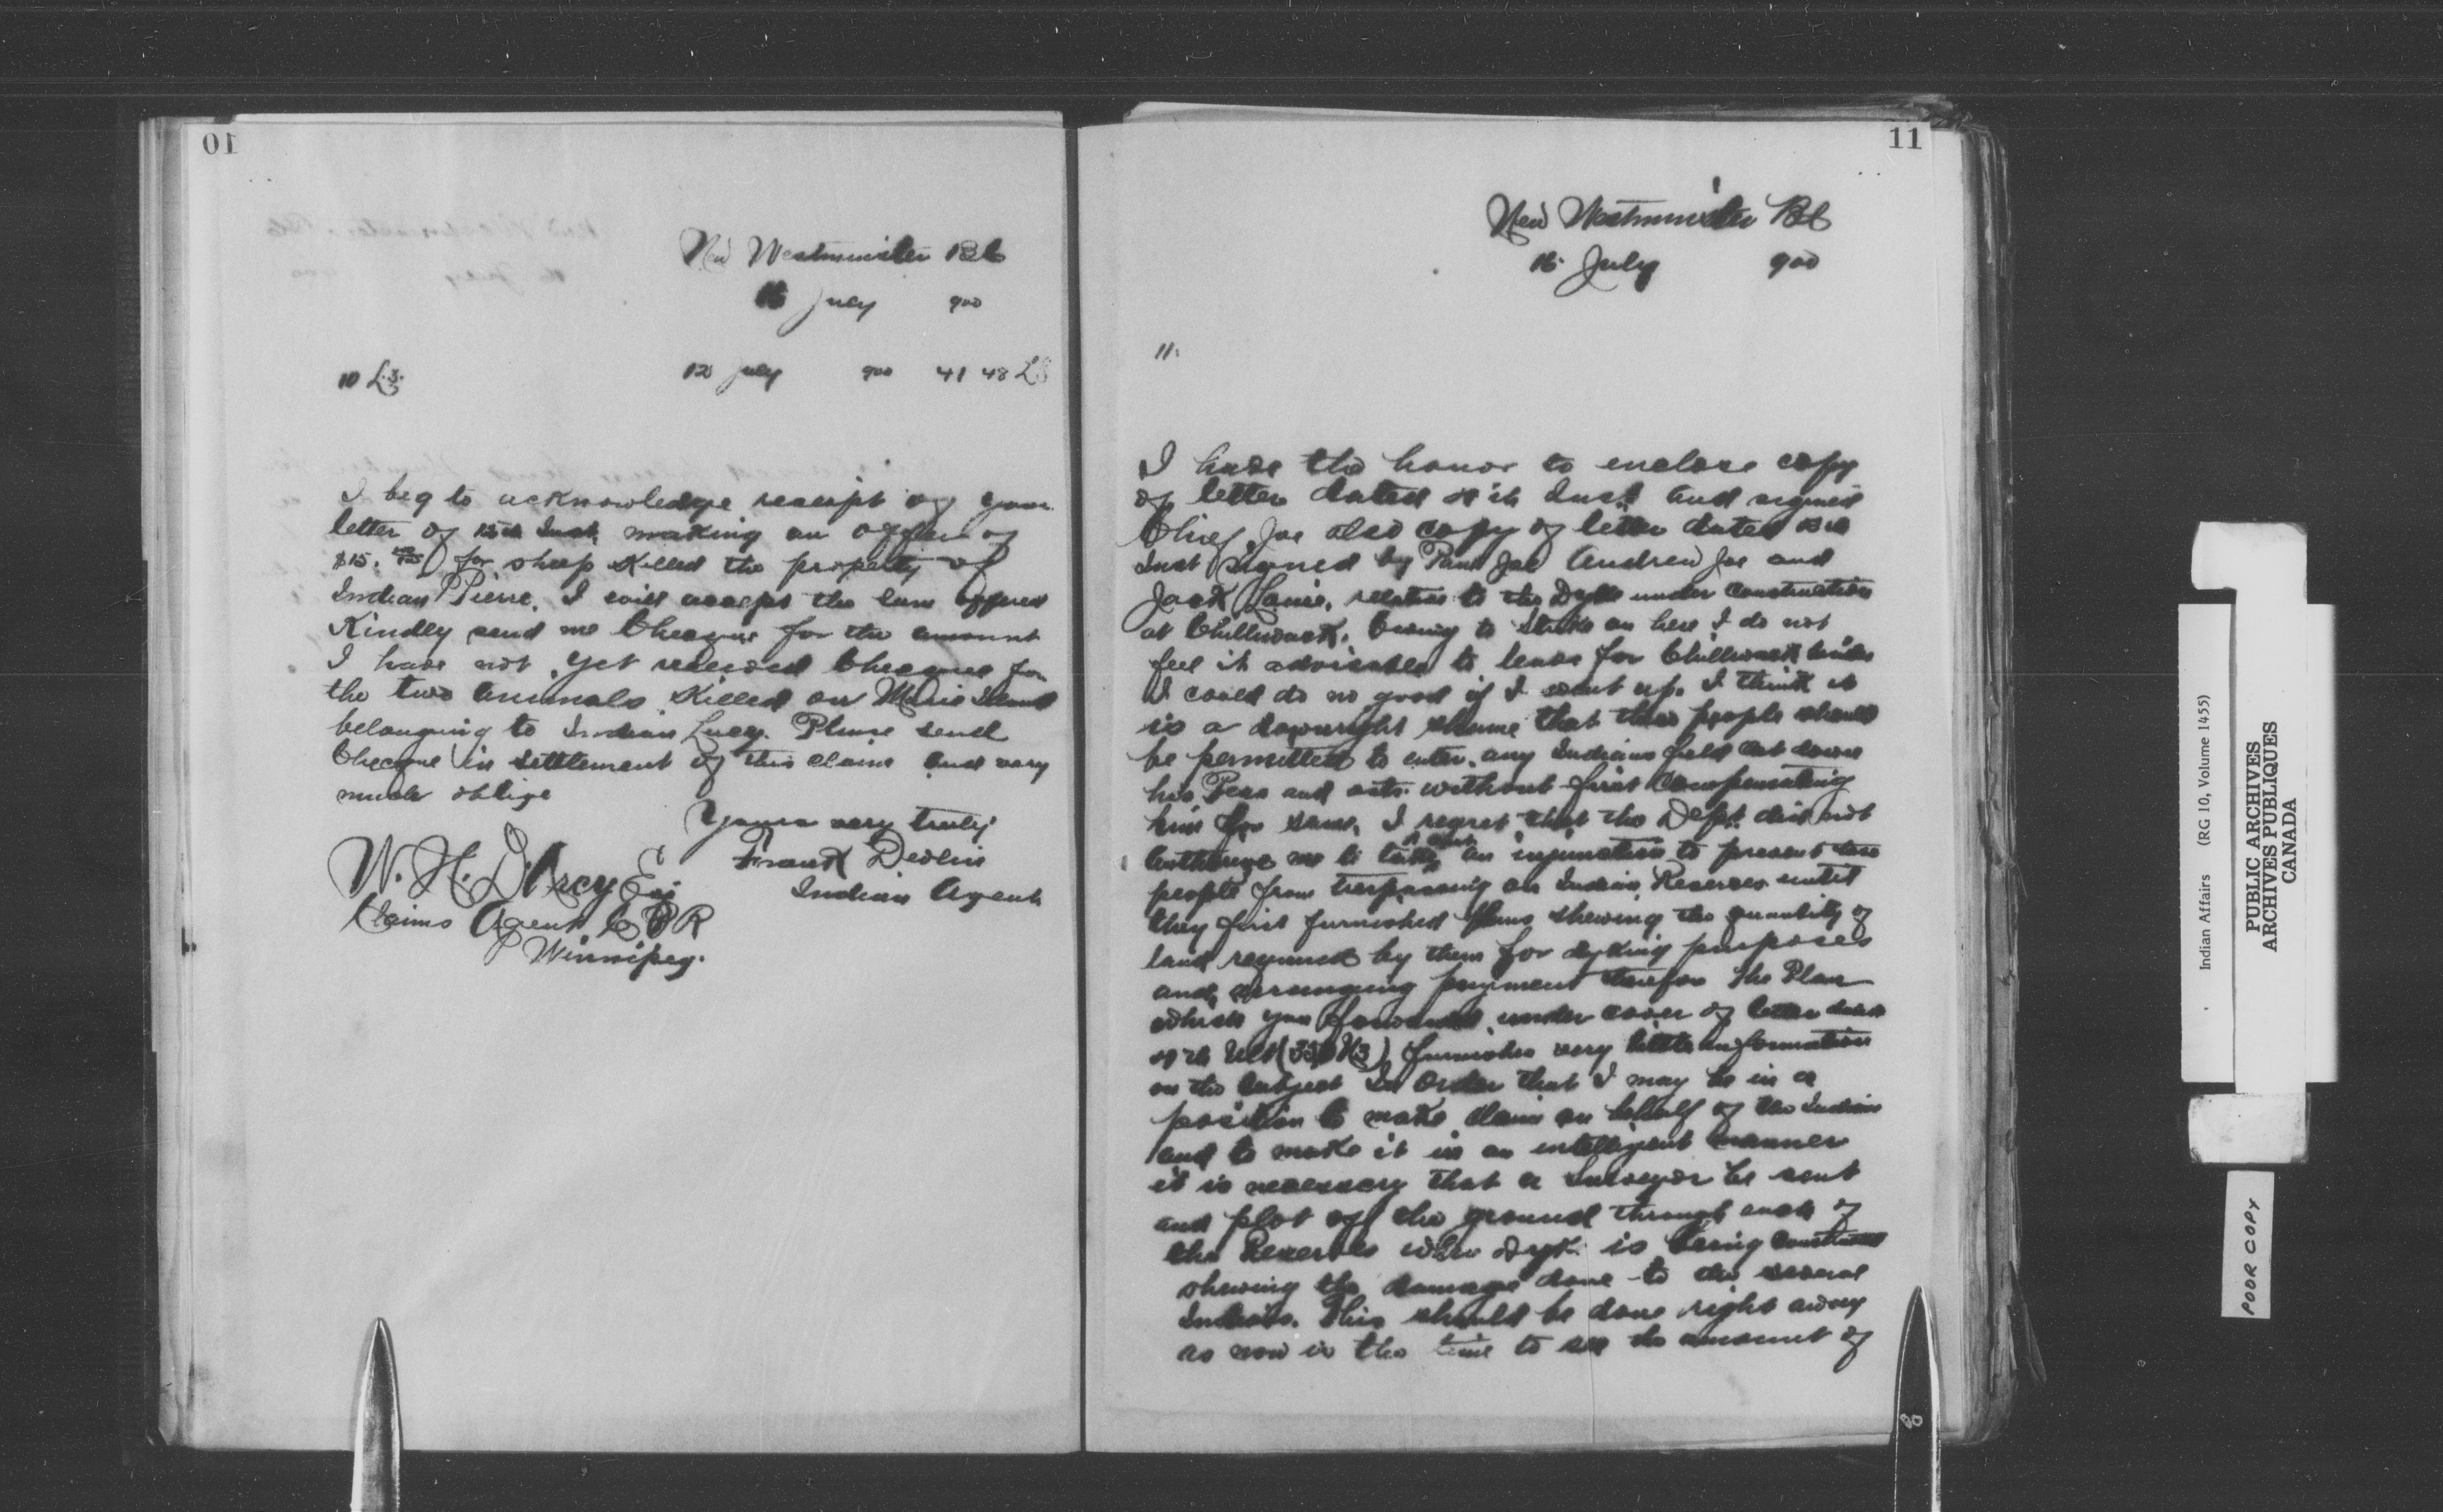 10
New Westminster BC
16 July 900
10 L.3. 12 July 900 41 48 L3
I beg to acknowledge receipt of your
letter of 12th Inst. making an offer of
$15. for sheep killed the property of
Indian Pierre. I will accept the sum offered
Kindly send me Cheque for the amount
I have not yet received Cheque for
the two animals killed on Island
belonging to Indian Lucy. Please send
Cheque in settlement of this claim and very
much oblige
Yours very truly
Frank Devlin
Indian Agent
W. H. D'Arcy Esq
Claims Agent C P R
Winnipeg.
11
New Westminster BC
16 July 900
11.
I have the honor to enclose copy
of letter dated Inst. and signed
Chief Joe also copy of letter dated
Inst signed by Paul Joe Andrew Joe and
Jack Louie, relative to the Dyke under construction
at Chilliwack. Owing to strike on here I do not
feel it advisable to leave for Chilliwack
I could do no good if I went up. I think it
is a downright shame that these people should
be permitted to enter any Indians field cut down
his Peas and oats without first compensating
him for same. I regret that the Dept. did not
authorize me to take out an injunction to prevent these
people from trespassing on Indian Reserves until
they first furnished plans shewing the quantity of
land required by them for dyking purposes
and arranging payment therefor The Plan
which you forwarded under cover of letter
Ult furnishes very little information
on the subject In Order that I may be in a
position to make claim on behalf of the Indians
and to make it in an intelligent manner
it is necessary that a Surveyor be sent
and plot off the ground through each of
the Reserves where dyke is being constructed
shewing the damage done to the several
Indians. This should be done right away
as now is the time to see the amount of
Indian Affairs (RG 10, Volume 1455)
PUBLIC ARCHIVES
ARCHIVES PUBLIQUES
CANADA
POOR COPY